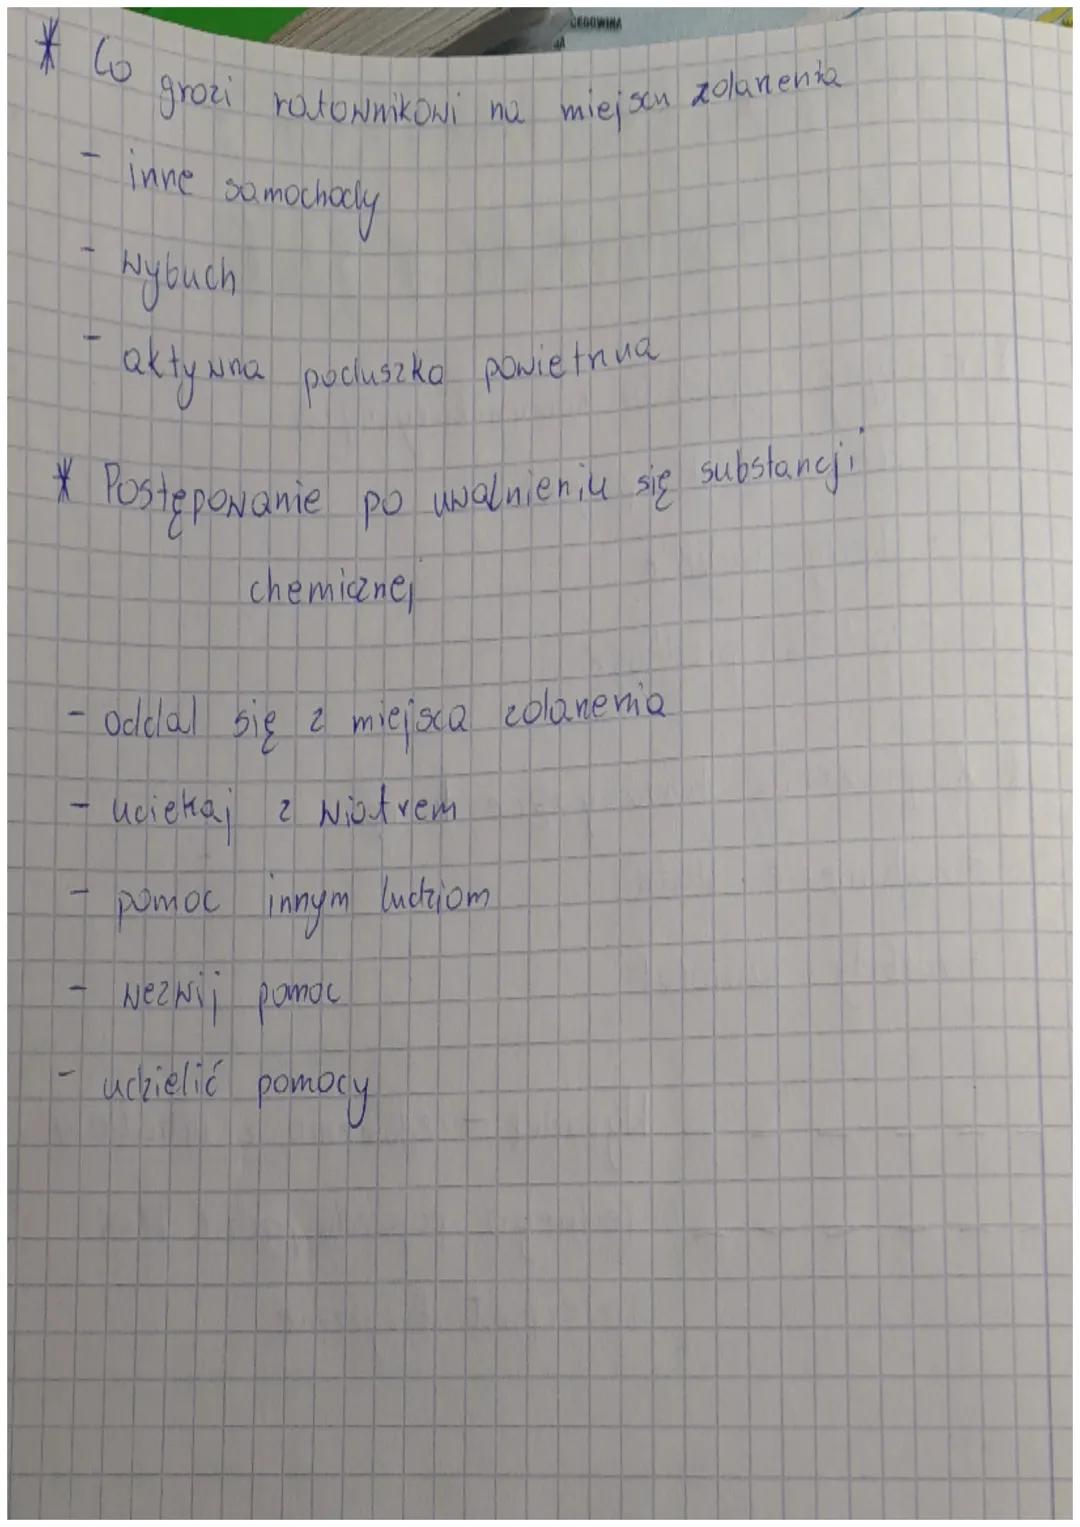 CEGOWINA
* Co grozi ratownikowi na miejscu zdarzenia
- inne samochody
- wybuch
- aktywna poduszka powietrzna
* Postępowanie po uwolnieniu się substancji
chemicznej
- oddal się z miejsca zdarzenia
- uciekaj z wiatrem
- pomoc innym ludziom
- wezwij pomoc
- udzielić pomocy